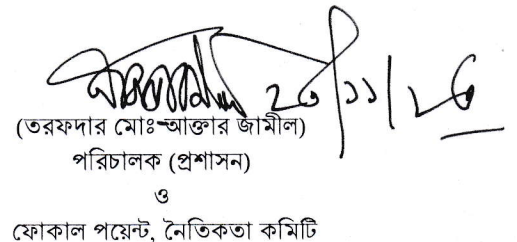 ২৩/১১/২৩
(তরফদার মোঃ আক্তার জামীল)
পরিচালক (প্রশাসন)
ও
ফোকাল পয়েন্ট, নৈতিকতা কমিটি